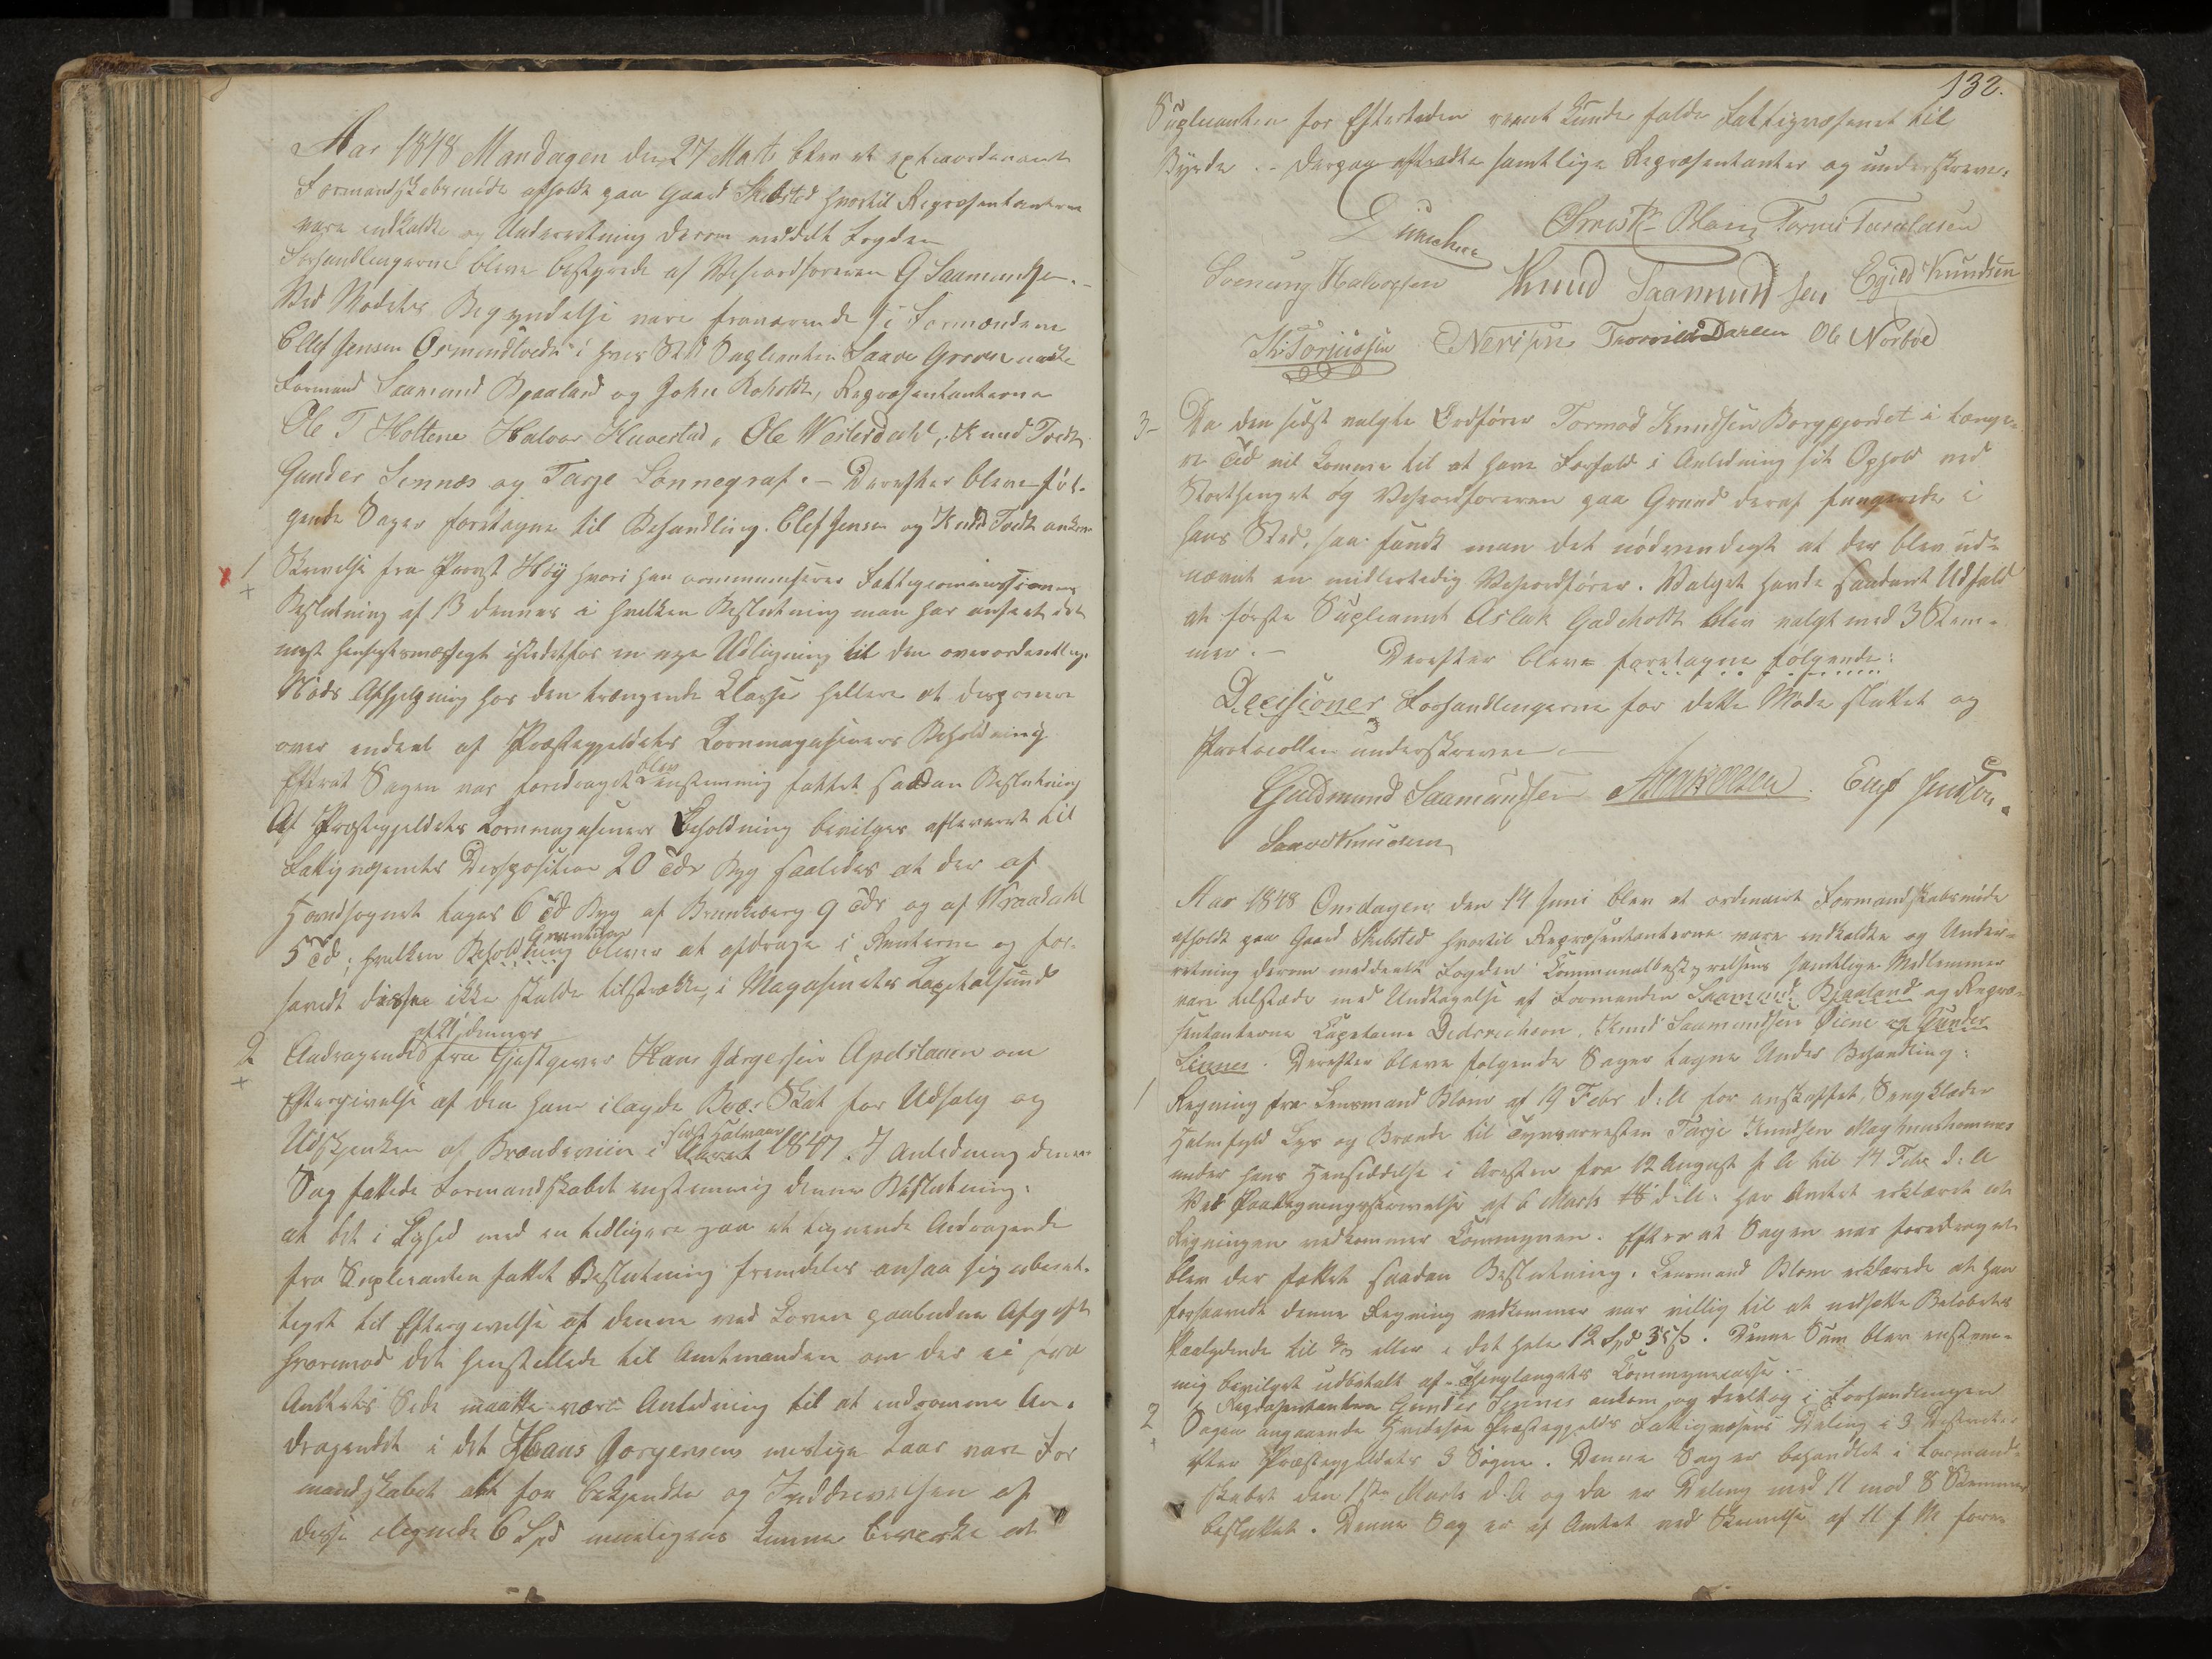 Aar 1848 Mandagen den 27 Marts blev et extraordenairt
Formandskabsmøde afholdt paa Gaard Skibsted hvortil Repræsentanterne
vare indkaldte og Underretning derom meddelt Fogden
Forhandlingerne bleve bestyrede af Viseordføreren G Saamundsen.
Ved Mødets Begyndelse vare fraværende Formændene
Ellef Jensen Osmundtvedt i hvis Sted Suplianten Saave Groven mødte
Formand Saamund Bjaaland og John Roholdt, Repræsentanterne
Ole T Holtene Halvor Haavestad, Ole Westerdahl, Knud Tvedt
Gunder Sinnes og Tarje Lønnegraf. - Derefter bleve føl-
gende Sager foretagne til Behandling. Ellef Jensen og Knud Tvedt ankom
1 Skrivelse fra Provst Høÿ hvori han communiserer Fattigcommissionens
Beslutning af 13 dennes i hvilken Beslutning man har anseet det
mest hensigtsmæssigt istedetfor en nye Udligning til den overordentlige
Nøds Afhjelpning hos den trængende Classe hellere at disponere
over endeel af Præstegjeldets Kornmagasiners Beholdning
Efterat Sagen var foredraget blev enstemmig fattet saadan Beslutning
Af Præstegjeldets Kornmagasiners Beholdning bevilges afleveret til
Fattigvæsenets Disposition 20 Tdr Byg saaledes at der af
Hovedsognet tages 6 Td Byg af Brunkeberg 9 Tdr og af Vraadahl
5 Td; hvilken Beholdning bliver at afdrage i Renterne og for-
saavidt disse ikke skulde tilstrække, i Magasinets Kapitalfund
2 Andragende af 21 dennes fra Gjæstgiver Hans Jørgensen Apelstaaen om
Eftergivelse af den ham ilagde Skat for Udsalg og
Udskjenken af Brændeviin i sidste Halvaar 1847. I Anledning denne
Sag fattede Formandskabet enstemmig denne Beslutning:
at det i Lighed med en tidligere paa et lignende Andragende
fra Suplicanten fattet Beslutning fremdeles ansaa sig uberet-
tiget til Eftergivelse af denne ved Loven paabudne Afgift
hvorimod det henstillede til Amtmanden om der ei fra
Amtets Side maatte være Anledning til at indrømme An-
dragendet i det Hans Jørgensens uselige Kaar vare For
mandskabet alt for bekjendte og Inddrivelsen af
disse lignede 6 Spd muligens kunne bevirke at
132.
Suplicanten for Eftertiden vilde falde Fattigvæsenet til
Byrde. - Derpaa aftraadte samtlige Repræsentanter og underskreve.
Christ. Blom Torius Taraldsen
Svenung Halvorsen Knud Saamundsen Egild Knudsen
K. Torjussen Neriſen Thorvild Dalen Ole Norbøe
3- Da den sidst valgte Ordfører Tormod Knudsen Borgejordet i længe-
re Tid vil komme til at have Forfald i Anledning sit Ophold ved
Storthinget og Viseordføreren paa Grund deraf fungerede i
hans Sted, saa fandt man det nødvendigt at der blev ud-
nævnt en midlertidig Viseordfører. Valget havde saadant Udfald
at første Supleannt Aslak Gadeholdt blev valgt med 3 Stem-
mer. - Derefter bleve foretagne følgende:
Decisioner Forhandlingerne for dette Møde sluttet og
Protocollen underskreven
Gudmund Saamundsen Aslak Olsen. Elef Jensen.
Saave Knudsen
Aar 1848 Onsdagen den 14 Juni blev et ordinairt Formandskabsmøde
afholdt paa Gaard Skibsted hvortil Repræsentanterne vare indkaldte og Under-
retning derom meddeelt Fogden Communalbestyrelsens samtlige Medlemmer
vare tilstæde med Undtagelse af Formanden Saamund Bjaaland og Repræ-
sentanterne Capitaine Didrichsen, Knud Saamundsen Øiene og Gunder
Sinnes. Derefter bleve følgende Sager tagne Under Behandling:
1 Regning fra Lensmand Blom af 19 Febr d:A for anskaffet, Sengklæder
Halm fyld Lys og Brænde til Tyvsarresten Tarje Knudsen
under hans Hensiddelse i Aresten fra 12 August f A til 14 Febr d:A
Ved Paategningsskrivelse af 6 Marts d:A: har Amtet erklæret at
Regningen vedkommer Communen. Efter at Sagen var foredraget
blev der fattet saadan Beslutning. Lensmand Blom erklærede at han
forsaavidt denne Regning vedkommer var villig til at nedsætte Beløbets
Paalydende til eller i det hele 12 Spd 35 ß. Denne Sum blev enstem-
mig bevilget udbetalt af Communecasse.-
Repræsentanten Gunder Sinnes ankom og deeltog i Forhandlingen
2 Sagen angaaende Hvidesøe Præstegjelds Fattigvæsens Deling i 3 Districter
efter Præstegjeldets 3 Sogne. Denne Sag er behandlet i Formand-
skabet den 1ste Marts d.A og da er Deling med 11 mod 8 Stemmer
besluttet. Denne Sag er af Amtet ved Skrivelse af 11 f M fore-